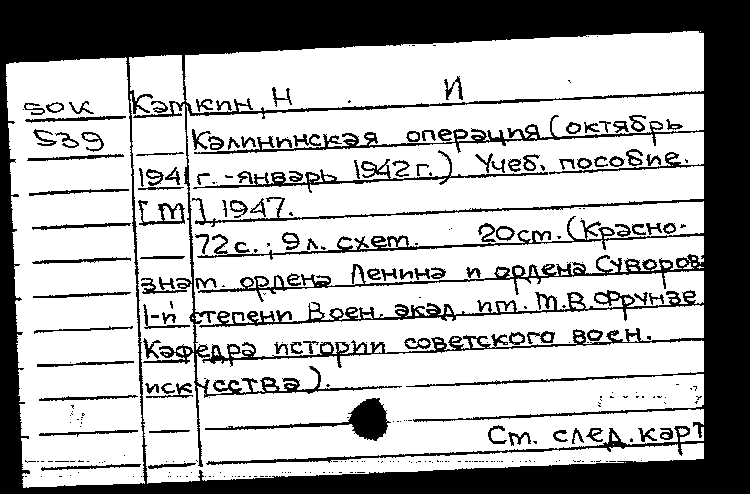 зок Каткин, Н И
539 Калининская операция (октябрь
1941 г. - январь 1942 г.). Учеб. пособие.
[М], 1947.
72 с.; 9 л. схем. 20 см. (Красно-
знам. ордена Ленина и ордена Суворова
1-й степени Воен. акад. им. М.В. Фрунзе
Кафедра истории советского воен.
искусства).
См. след. карт